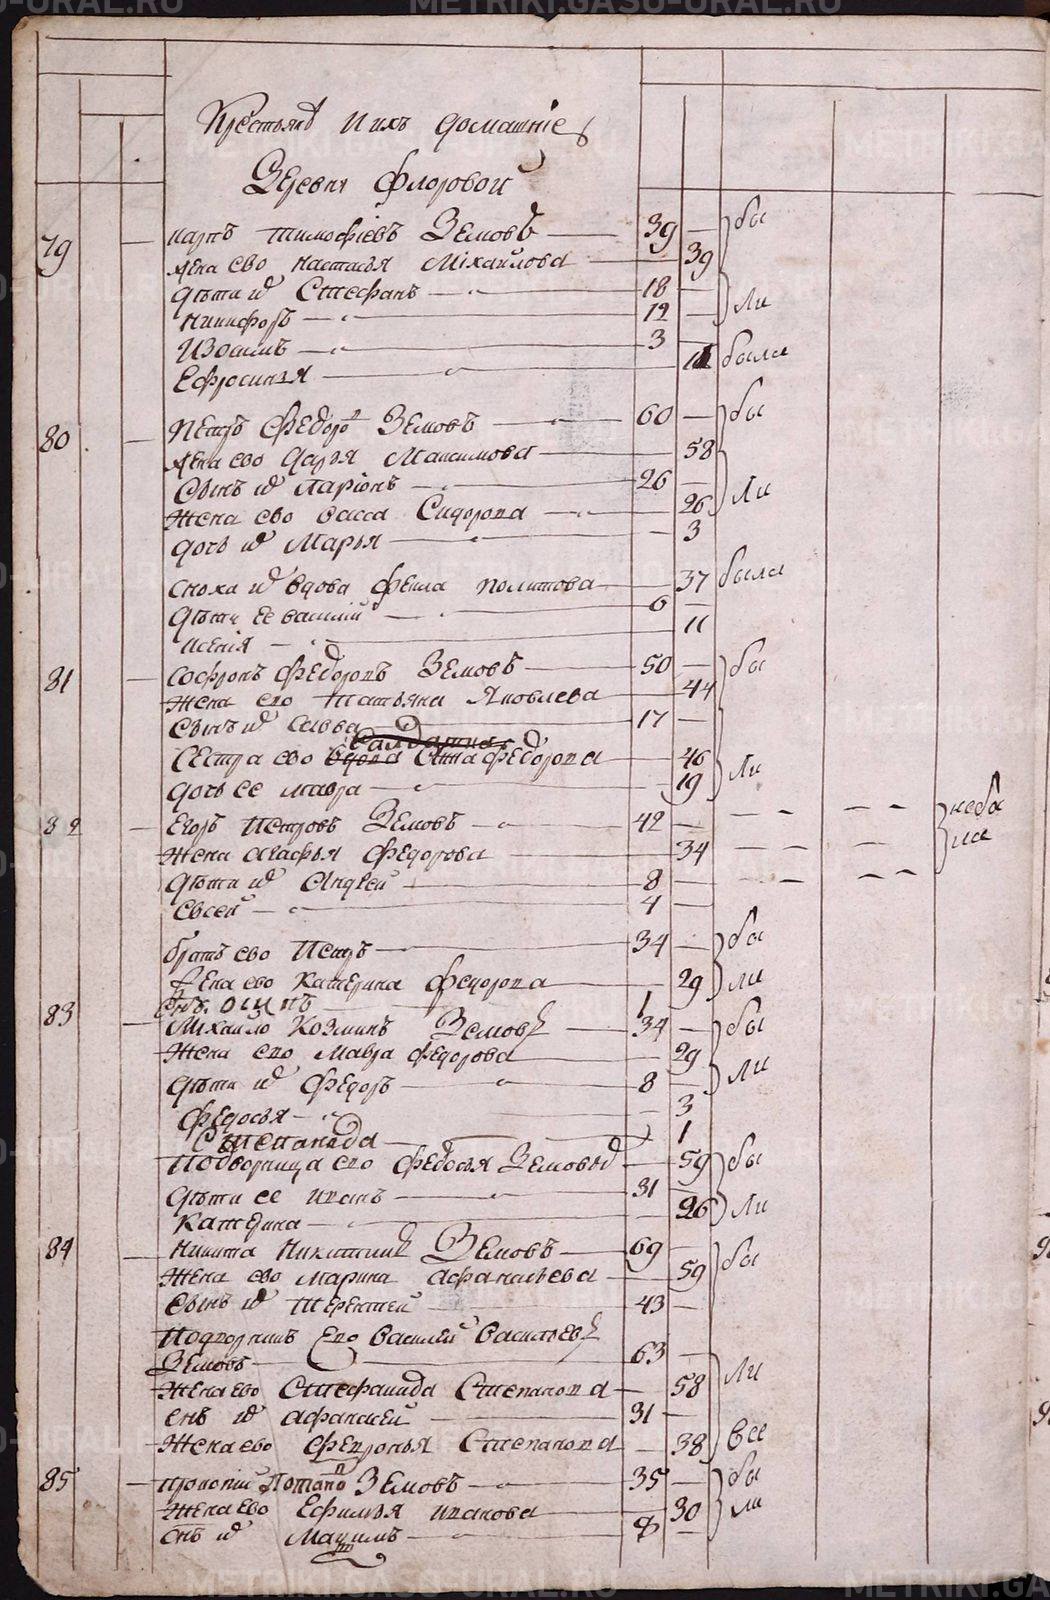 METRIKI.GASO-URAL.RU
домашніе
Деревни Флоровой
79 Карпъ Тимофіевъ Земовъ 39 бы
жена ево Настасья Міхаилова 39
дѣти их Стефанъ 18 ли
Никифоръ 12
Изосимъ 3
Ефросинья была
80 Петръ Федоро Земовъ 60 бы
жена ево Дарья Максимова 58
Сынъ их Ларіонъ 26 ли
Жена ево Васса Сидорова 26
дочь их Марья 3
сноха их вдова Фекла Политова 37 была
дѣти ее Василій 6
Ксенія 11
81 Софронъ Федоровъ Земовъ 50 бы
Жена ево Татьяна Яковлева 44
Сынъ их Савва 17
Салдатка
Сестра ево вдова Анна Федорова 46
дочь ее Мавра 19 ли
82 Егоръ Петровъ Земовъ 42 небы
Жена Агафья Федорова 34
дѣти их Андрей 8
Евсей 4
братъ ево Петръ 34 бы
Жена ево Катерина Федорова 29 ли
Снъ. Осипъ 1
83 Міхаило Козминъ Земовъ 34 бы
Жена ево Мавра Федорова 29
дѣти их Федоръ 8 ли
Федосья 3
Степанида 1
Подворница ево Федосья Земовых 59 бы
дѣти ее Иванъ 31
Катерина 26 ли
84 Никита Никитинъ Земовъ 69 бы
Жена ево Марина Афанасьева 59
Сынъ их Терентей 43
Подворникъ Ево Василей Васильевъ
Земовъ 63
Жена ево Стефанида Степанова 58 ли
снъ их Афанасей 31
Жена ево Февронья Степанова 38 все
85 Прокопій Потапо Земовъ 35 бы
Жена ево Ефимья Иванова 30 ли
Снъ их Максимъ 8